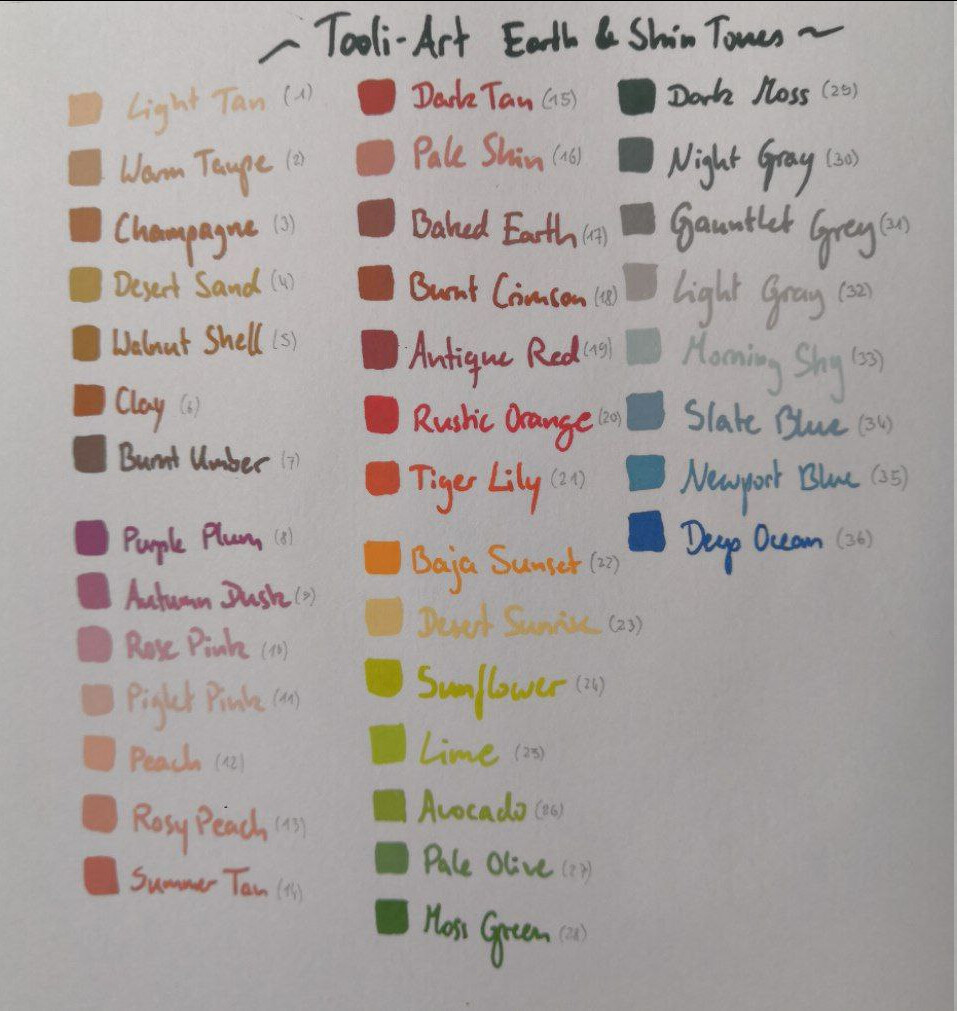 ~ Tooli-Art Earth & Skin Tones ~
Light Tan (1)
Warm Taupe (2)
Champagne (3)
Desert Sand (4)
Walnut Shell (5)
Clay (6)
Burnt Umber (7)
Purple Plum (8)
Autumn Dusk (9)
Rose Pink (10)
Piglet Pink (11)
Peach (12)
Rosy Peach (13)
Summer Tan (14)
Dark Tan (15)
Pale Skin (16)
Baked Earth (17)
Burnt Crimson (18)
Antique Red (19)
Rustic Orange (20)
Tiger Lily (21)
Baja Sunset (22)
Desert Sunrise (23)
Sunflower (24)
Lime (25)
Avocado (26)
Pale Olive (27)
Moss Green (28)
Dark Moss (29)
Night Gray (30)
Gauntlet Grey (31)
Light Gray (32)
Morning Sky (33)
Slate Blue (34)
Newport Blue (35)
Deep Ocean (36)